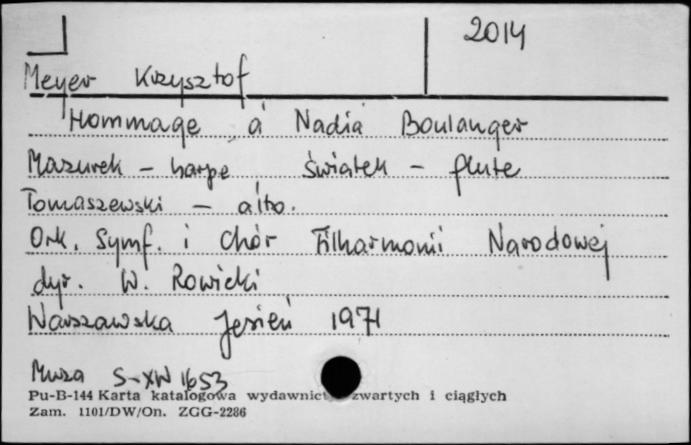 2014
Meyer Krzysztof
Hommage á Nadia Boulanger
Mazurek – harpe Świątek – flute
Tomaszewski – alto.
Ork. Symf. i Chór Filharmonii Narodowej
dyr. W. Rowicki
Warszawska Jesień 1971
Muza S-XW 1653
Pu-B-144 Karta katalogowa wydawnict zwartych i ciągłych
Zam. 1101/DW/On. ZGG-2286